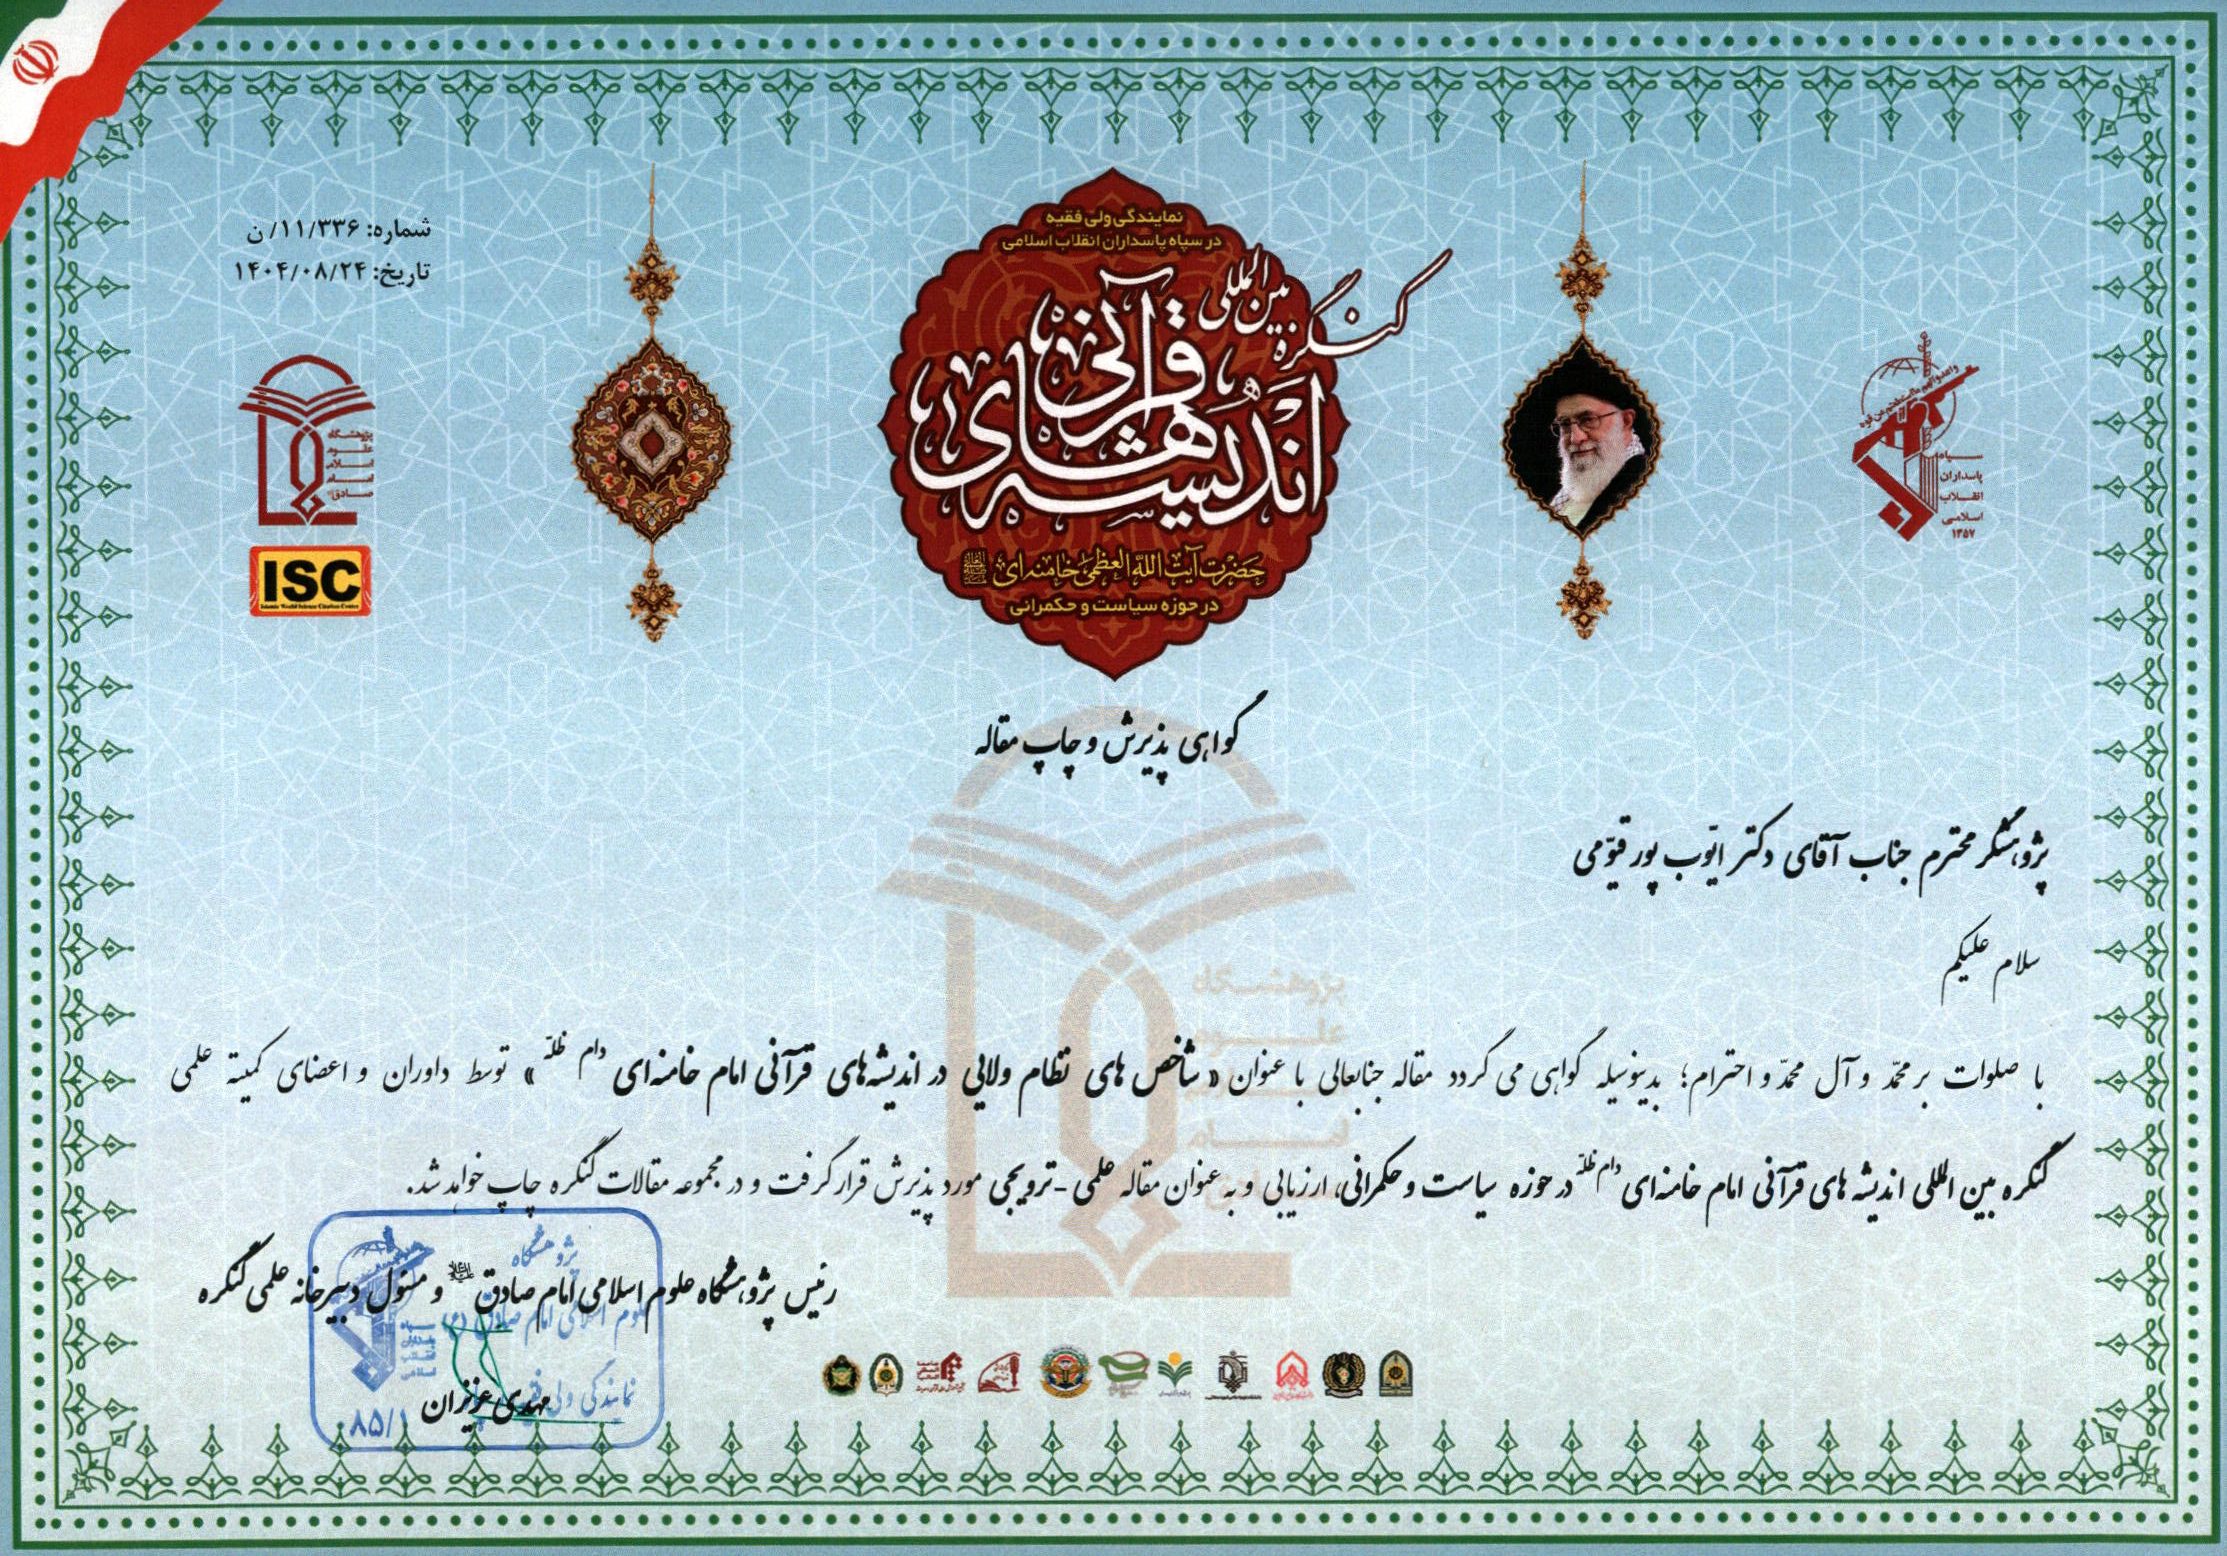 شماره: ۱۱/۳۳۶/ ن
تاریخ: ۱۴۰۴/۰۸/۲۴
نمایندگی ولی فقیه
در سپاه پاسداران انقلاب اسلامی
کنگره بین المللی
اندیشه های قرآنی
حضرت آیت الله العظمی خامنه ای
در حوزه سیاست و حکمرانی
سپاه
پاسداران
انقلاب
اسلامی
۱۳۵۷
پژوهشگاه
علوم
اسلامی
امام
صادق
ISC
Islamic World Science Citation Center
گواهی پذیرش و چاپ مقاله
پژوهشگر محترم جناب آقای دکتر ایّوب پور قیّومی
سلام علیکم
با صلوات بر محمّد و آل محمّد و احترام؛ بدینوسیله گواهی می گردد مقاله جنابعالی با عنوان « شاخص های نظام ولایی در اندیشه‌های قرآنی امام خامنه‌ای دام ظلّه » توسط داوران و اعضای کمیته علمی
کنگره بین المللی اندیشه های قرآنی امام خامنه‌ای دام ظلّه در حوزه سیاست و حکمرانی، ارزیابی و به عنوان مقاله علمی - ترویجی مورد پذیرش قرار گرفت و در مجموعه مقالات کنگره چاپ خواهد شد.
رئیس پژوهشگاه علوم اسلامی امام صادق علیه‌السلام و مسئول دبیرخانه علمی کنگره
مهدی عزیزان
پژوهشگاه
علوم اسلامی امام صادق (ع)
نمایندگی ولی فقیه
۸۵/۱
سپاه
پاسداران
انقلاب
اسلامی